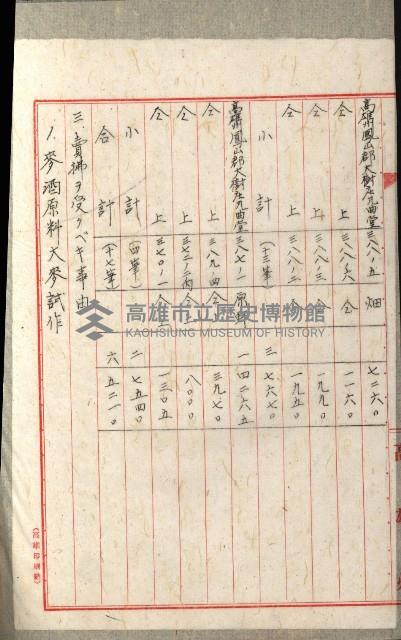 高雄州鳳山郡大樹庄九曲堂 三八八ノ五 畑 七二六〇
仝 上 三八八ノ六 仝 一一六〇
仝 上 三八八ノ三 仝 一九九〇
仝 上 三八八ノ二 仝 一九五〇
小 計 (十三筆) 三 七六七〇
高雄州鳳山郡大樹庄九曲堂 三八七ノ一 原野 一 四二六五
仝 上 三八九ノ四 仝 三九七〇
仝 上 三七二ノ二内 仝 八〇〇〇
仝 上 三七〇ノ一 仝 一三〇五
小 計 (四筆) 二 七五四〇
合 計 (十七筆) 六 五二一〇
三、賣拂ヲ受クベキ事由
1、麥酒原料大麥試作
高雄市立歷史博物館
KAOHSIUNG MUSEUM OF HISTORY
高雄